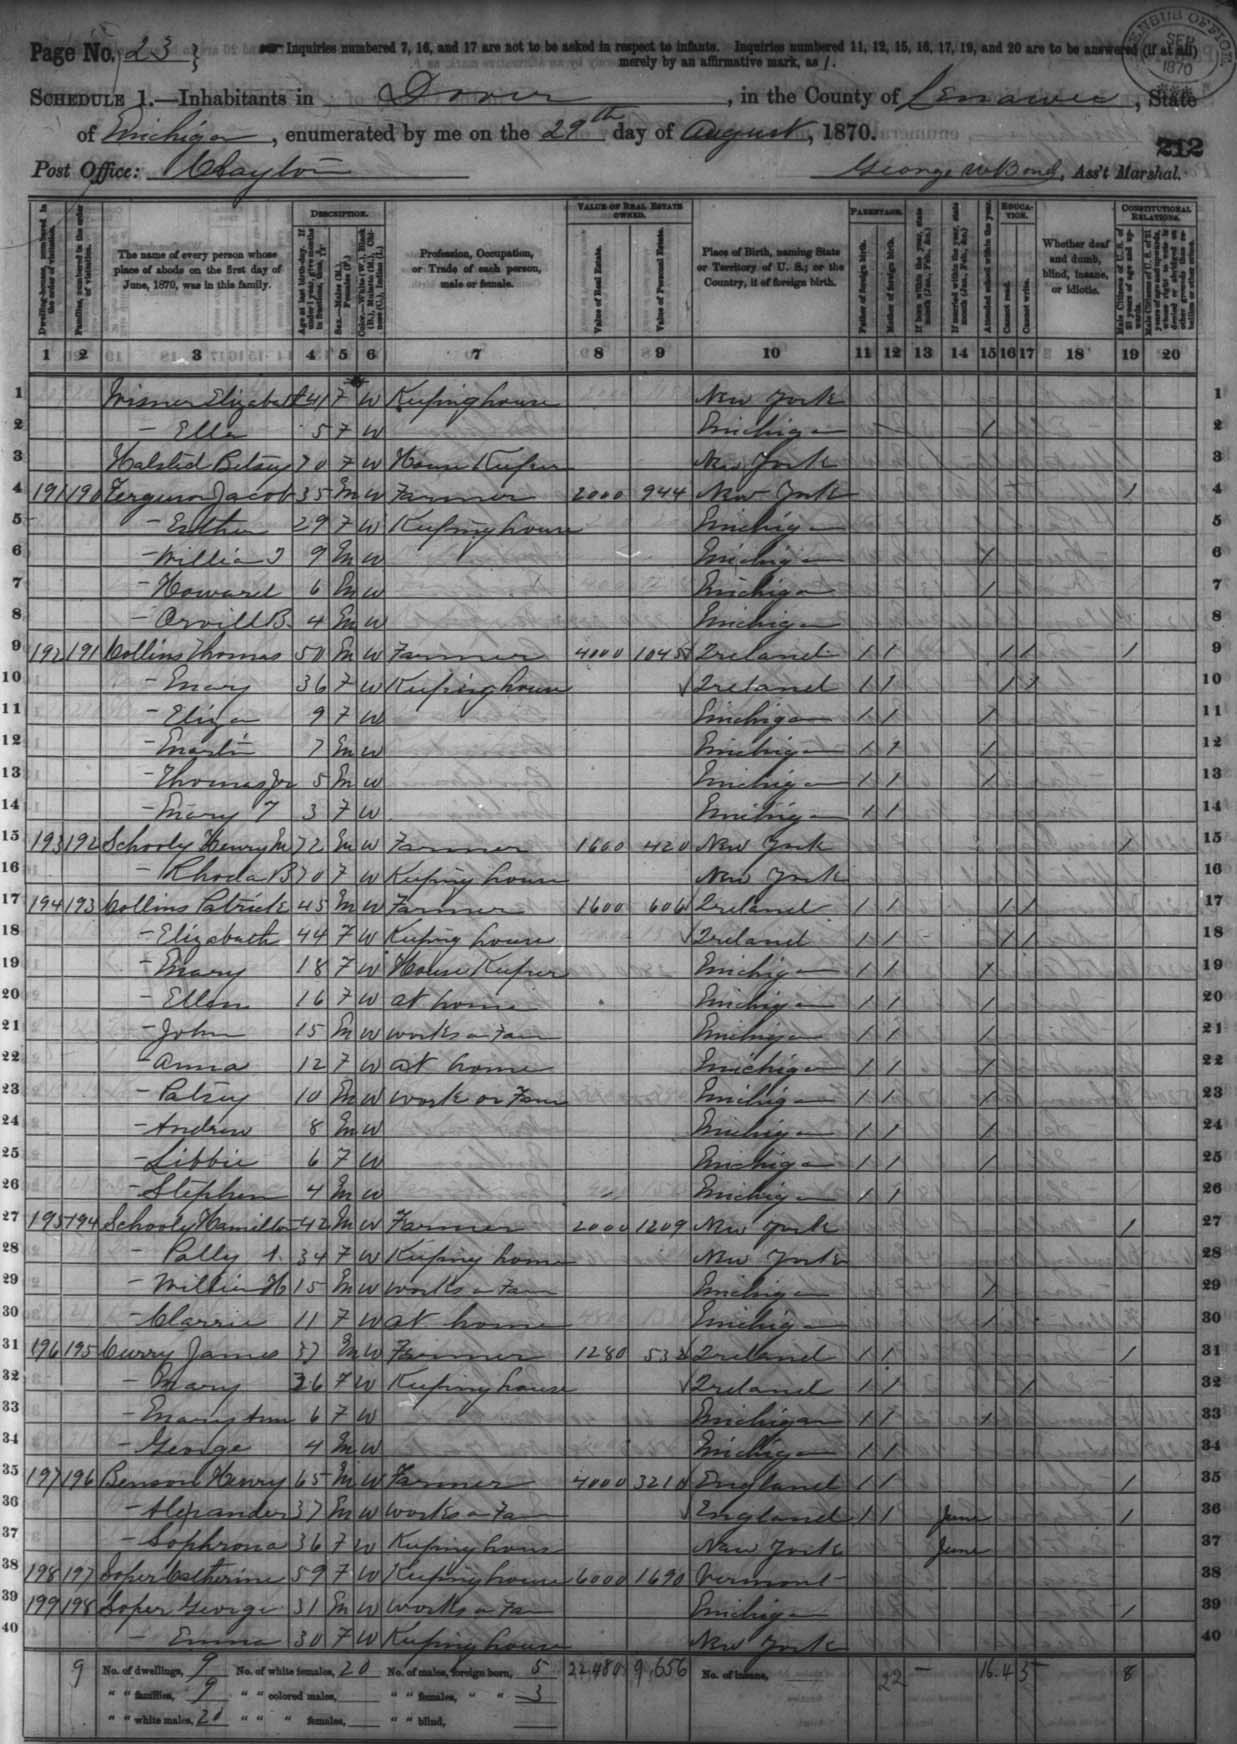 Page No. 23 } Inquiries numbered 7, 16, and 17 are not to be asked in respect to infants. Inquiries numbered 11, 12, 15, 16, 17, 19, and 20 are to be answered (if at all)
merely by an affirmative mark, as /.
CENSUS OFFICE SEP 1870
SCHEDULE 1.—Inhabitants in Dover, in the County of Lenawee, State
of Michigan, enumerated by me on the 29th day of August, 1870.
212
Post Office: Clayton George W Bond, Ass't Marshal.
Dwelling-houses, numbered in the order of visitation.
Families, numbered in the order of visitation.
The name of every person whose place of abode on the first day of June, 1870, was in this family.
DESCRIPTION.
VALUE OF REAL ESTATE OWNED.
Value of Real Estate.
Value of Personal Estate.
Profession, Occupation, or Trade of each person, male or female.
Place of Birth, naming State or Territory of U. S.; or the Country, if of foreign birth.
PARENTAGE.
Father of foreign birth.
Mother of foreign birth.
If born within the year, state month (Jan., Feb., &c.)
If married within the year, state month (Jan., Feb., &c.)
Attended school within the year.
EDUCATION.
Cannot read.
Cannot write.
Whether deaf and dumb, blind, insane, or idiotic.
CONSTITUTIONAL RELATIONS.
1 2 3 4 5 6 7 8 9 10 11 12 13 14 15 16 17 18 19 20
1 Wisner Elizabeth 41 F W Keeping house New York 1
2 — Ella 5 F W Michigan / 2
3 Halsted Betsey 70 F W House Keeper New York 3
4 191 190 Ferguson Jacob 35 M W Farmer 2000 944 New York 1 4
5 — Esther 29 F W Keeping house Michigan 5
6 — William J 9 M W Michigan / 6
7 — Howard 6 M W Michigan / 7
8 — Orvill B. 4 M W Michigan 8
9 192 191 Collins Thomas 50 M W Farmer 4000 1045 Ireland / / / / / 9
10 — Mary 36 F W Keeping house Ireland / / / / 10
11 — Eliza 9 F W Michigan / / / 11
12 — Martin 7 M W Michigan / / / 12
13 — Thomas Jr 5 M W Michigan / / / 13
14 — Mary T 3 F W Michigan / / 14
15 193 192 Schooly Henry M 72 M W Farmer 1600 420 New York / 15
16 — Rhoda B 70 F W Keeping house New York 16
17 194 193 Collins Patrick 45 M W Farmer 1600 606 Ireland / / / / 17
18 — Elizabeth 44 F W Keeping house Ireland / / / / 18
19 — Mary 18 F W House Keeper Michigan / / / 19
20 — Ellen 16 F W at home Michigan / / / 20
21 — John 15 M W works on Farm Michigan / / / 21
22 — Anna 12 F W at home Michigan / / / 22
23 — Patsey 10 M W work on Farm Michigan / / / 23
24 — Andrew 8 M W Michigan / / / 24
25 — Libbie 6 F W Michigan / / / 25
26 — Stephen 4 M W Michigan / / 26
27 195 194 Schooly Hamilton 42 M W Farmer 2000 1209 New York / 27
28 — Polly A. 34 F W Keeping house New York 28
29 — William H 15 M W works on Farm Michigan / 29
30 — Clarrie 11 F W at home Michigan / 30
31 196 195 Curry James 37 M W Farmer 1280 532 Ireland / / / 31
32 — Mary 26 F W Keeping house Ireland / / / 32
33 — Mary Ann 6 F W Michigan / / / 33
34 — George 4 M W Michigan / / 34
35 197 196 Benson Henry 65 M W Farmer 4000 3210 England / / / 35
36 — Alexander 37 M W works on Farm England / / June / 36
37 — Sophrona 36 F W Keeping house New York June 37
38 198 197 Soper Catherine 59 F W Keeping house 6000 1690 Vermont 38
39 199 198 Soper George 31 M W works on Farm Michigan / 39
40 — Emma 30 F W Keeping house New York 40
9 No. of dwellings, 9 No. of white females, 20 No. of males, foreign born, 5 22,480 9,656 No. of insane, 22 — 16 4 5 8
" " families, 9 " " colored males, " " females, " " 3
" " white males, 20 " " " females, " " blind,